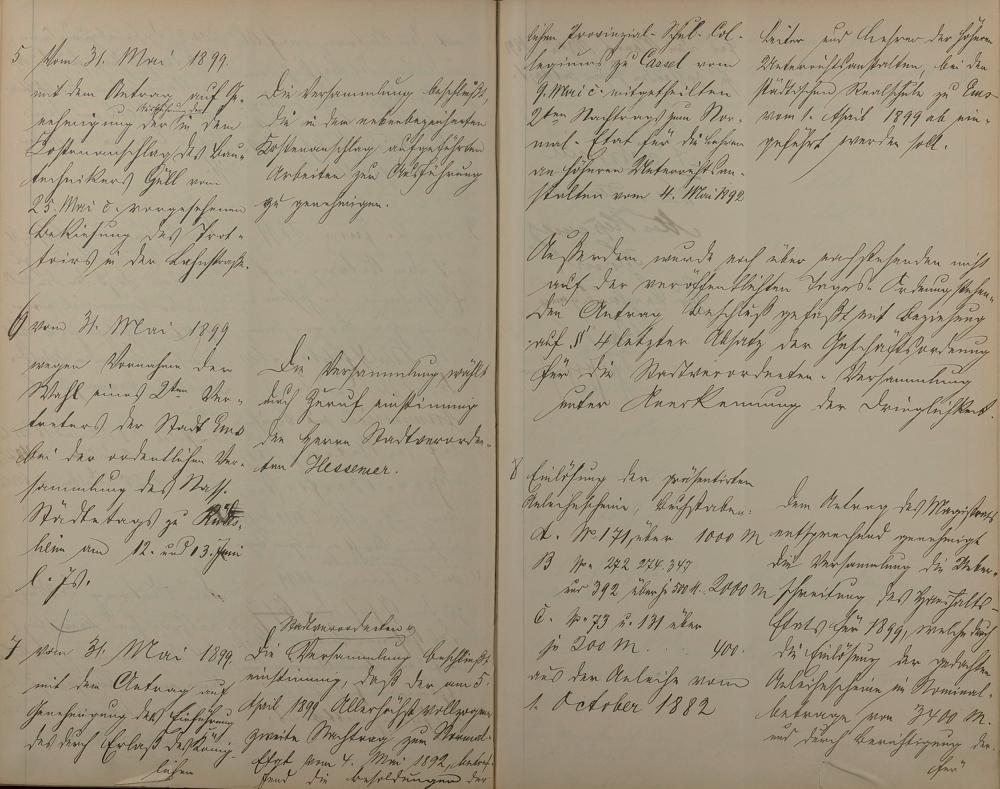 5 Vom 31. Mai 1899.
mit dem Antrag auf Ge-
nehmigung der in dem
Kostenanschlag des Bau-
technikers Güll vom
25. Mai c. vorgesehenen
Bekiesung des Trot-
toirs in der Lahnstraße.
Die Versammlung beschließt,
die in dem nebenbezeichneten
Kostenanschlag aufgeführten
Arbeiten zur Ausführung
zu genehmigen.
6 vom 31. Mai 1899
wegen Vornahme der
Wahl eines 2ten Ver-
treters der Stadt Ems
bei der ordentlichen Ver-
sammlung des Nass.
Städtetags zu
heim am 12. und 13. Juni
l. Js.
Die Versammlung wählt
durch Zuruf einstimmig
den Herrn Stadtverordne-
ten Hessemer.
7 vom 31. Mai 1899.
mit dem Antrag auf
Genehmigung der Einführung
des durch Erlaß des König-
lichen
Stadtverordneten
Die Versammlung beschließt
einstimmig, daß der am 5.
April 1899 Allerhöchst vollzogene
zweite Nachtrag zum Normal-
Etat vom 4. Mai 1892, betref-
fend die Besoldungen der
lichen Provinzial-Schul-Col-
legiums zu Cassel vom
9. Mai c. mitgetheilten
2ten Nachtrags zum Nor-
mal-Etat für die Lehrer
an höheren Unterrichtsan-
stalten vom 4. Mai 1892
Leiter und Lehrer der höheren
Unterrichtsanstalten, bei der
städtischen Realschule zu Ems
vom 1. April 1899 ab ein-
geführt werden soll.
Außerdem wurde noch über nachstehenden nicht
auf der veröffentlichten Tages-Ordnung stehen-
den Antrag Beschluß gefaßt mit Beziehung
auf § 4 letzter Absatz der Geschäftsordnung
für die Stadtverordneten-Versammlung
unter Anerkennung der Dringlichkeit.
8 Einlösung der präsentirten
Anleihescheine, Buchstaben:
A. No 171, über 1000 M
B No 272 274. 347
und 392 über je 500 M. 2000 M
C. No 73 u. 131 über
je 200 M. . . . 400.
aus der Anleihe vom
1. October 1882
Dem Antrag des Magistrats
entsprechend genehmigt
die Versammlung die Ueber-
schreitung des Haushalts-
Etats für 1899, welche durch
die Einlösung der gedachten
Anleihescheine im Nominal-
betrage von 3400 M.
und durch Berichtigung der